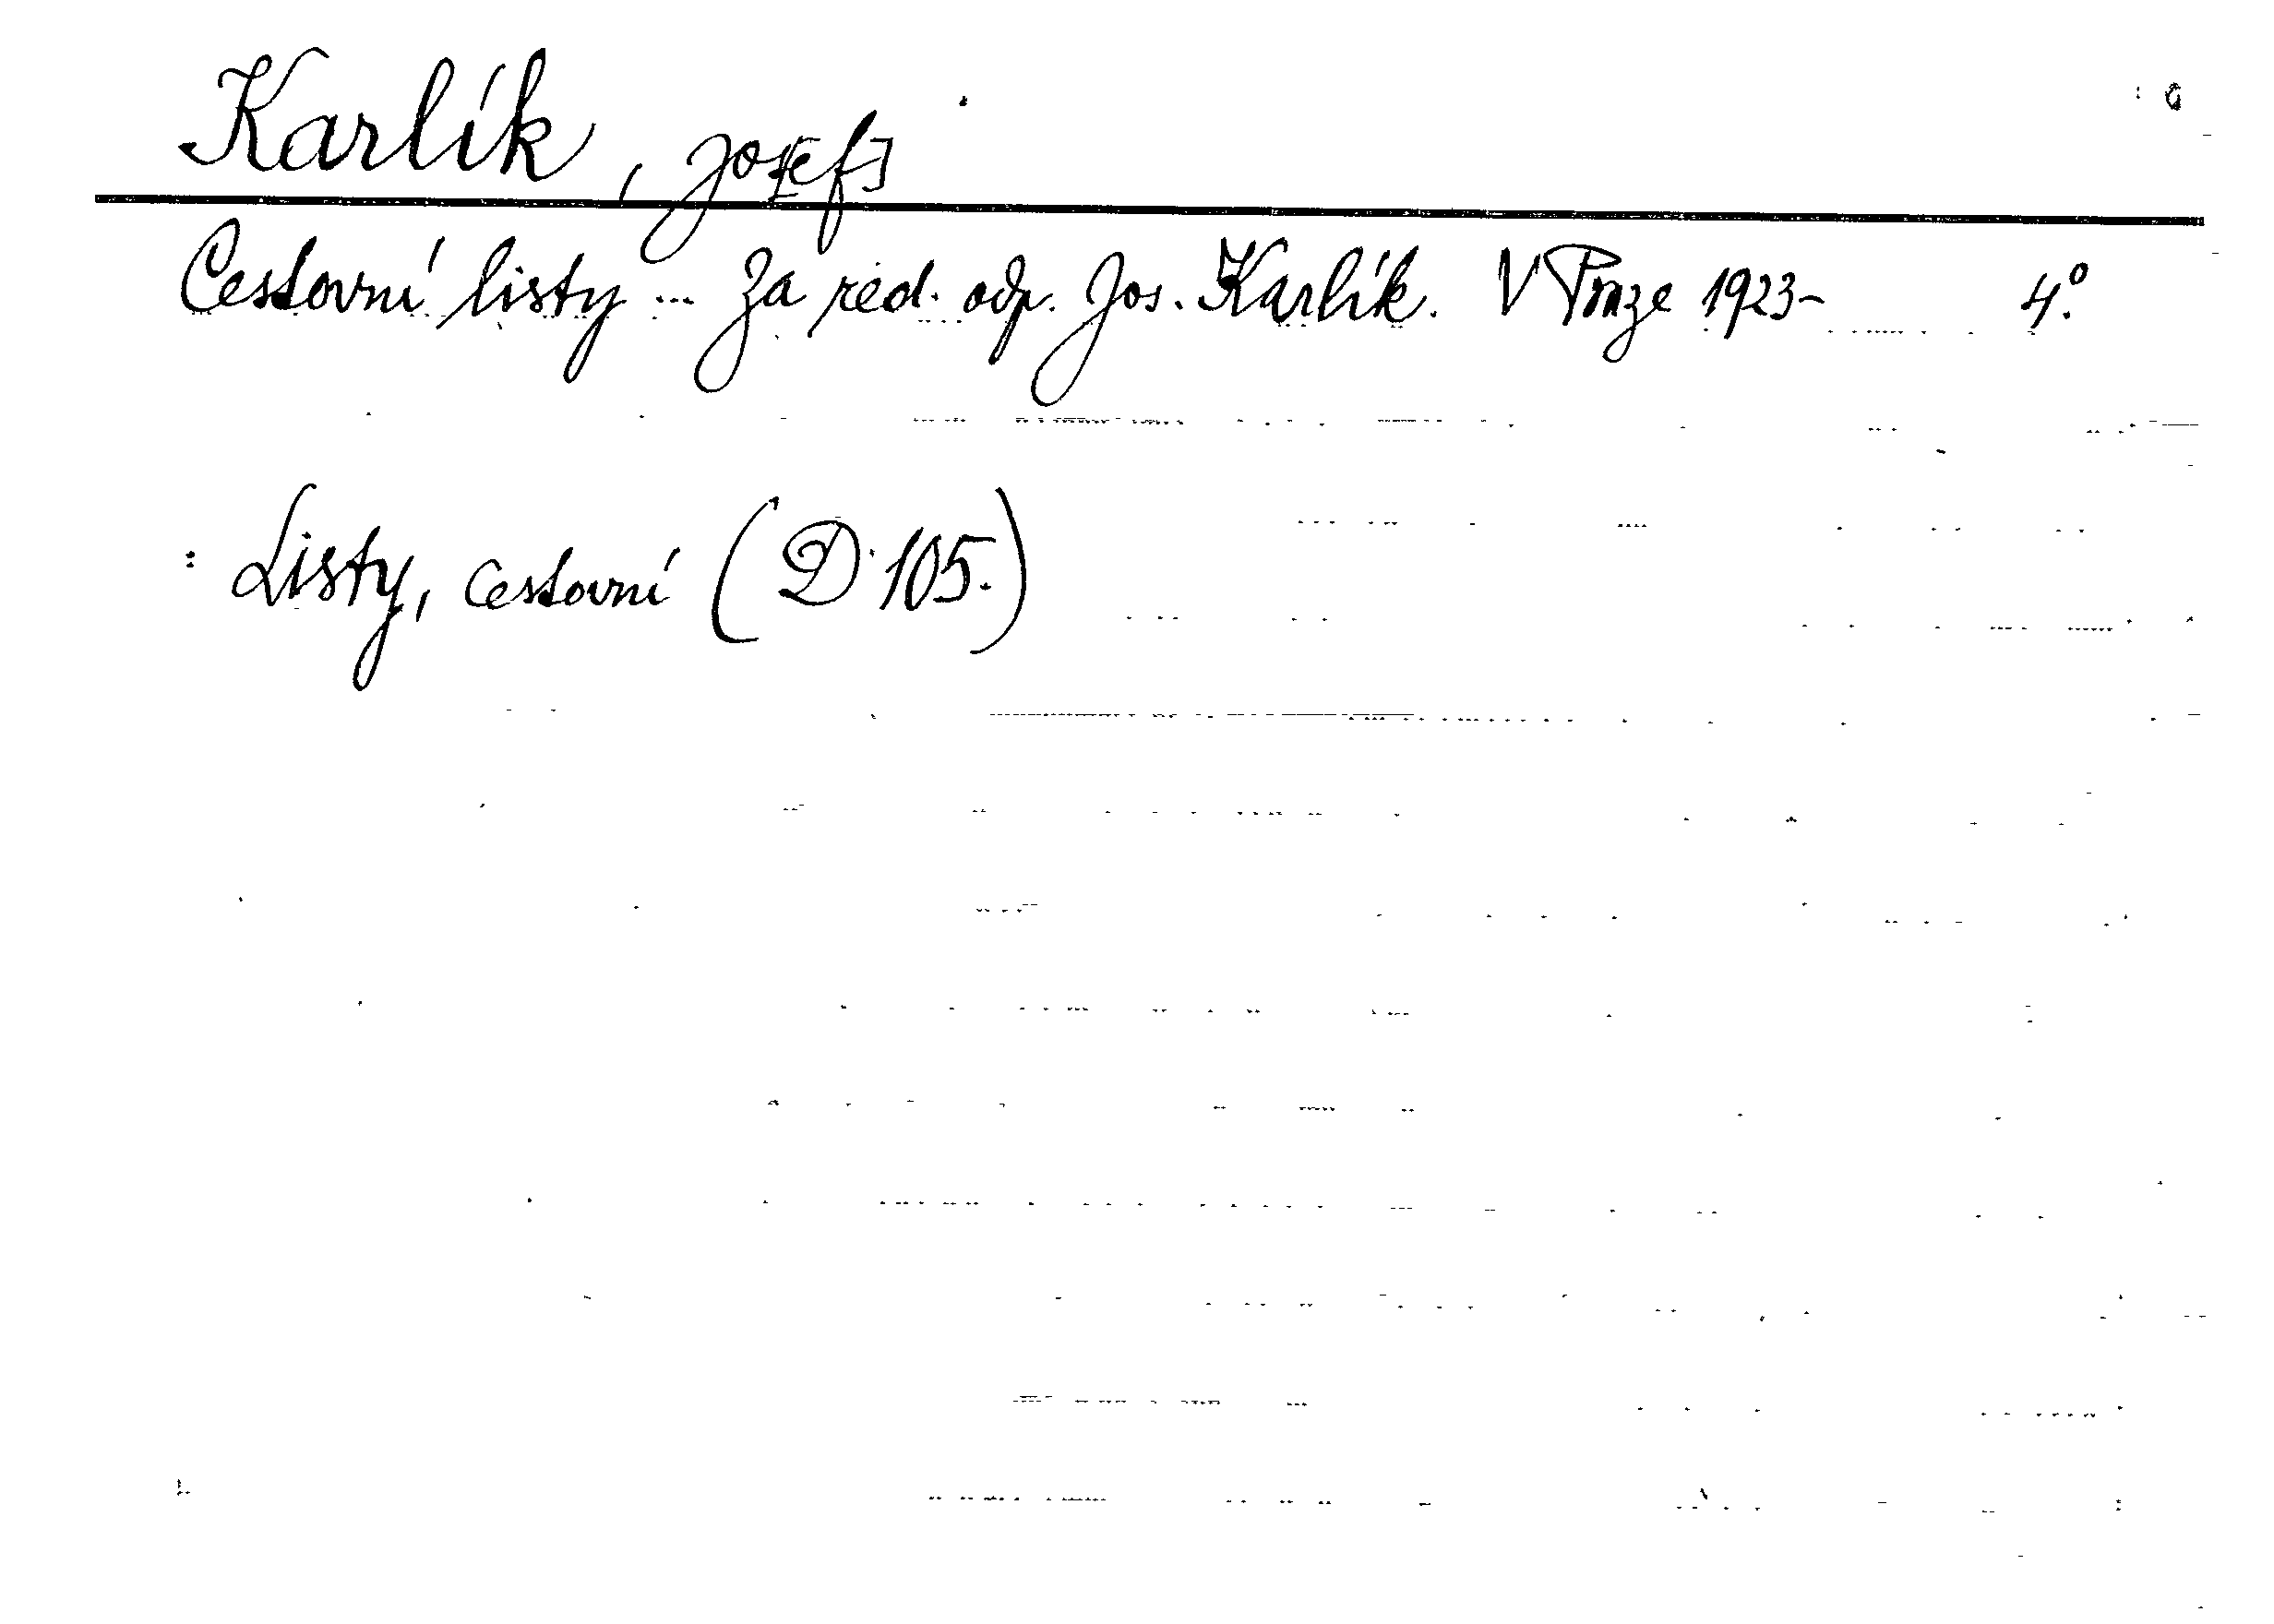 Karlík, Jos[ef]
Cestovní listy ... Za red. odp. Jos. Karlík. V Praze 1923- 4°.
: Listy, cestovní (D·105.)